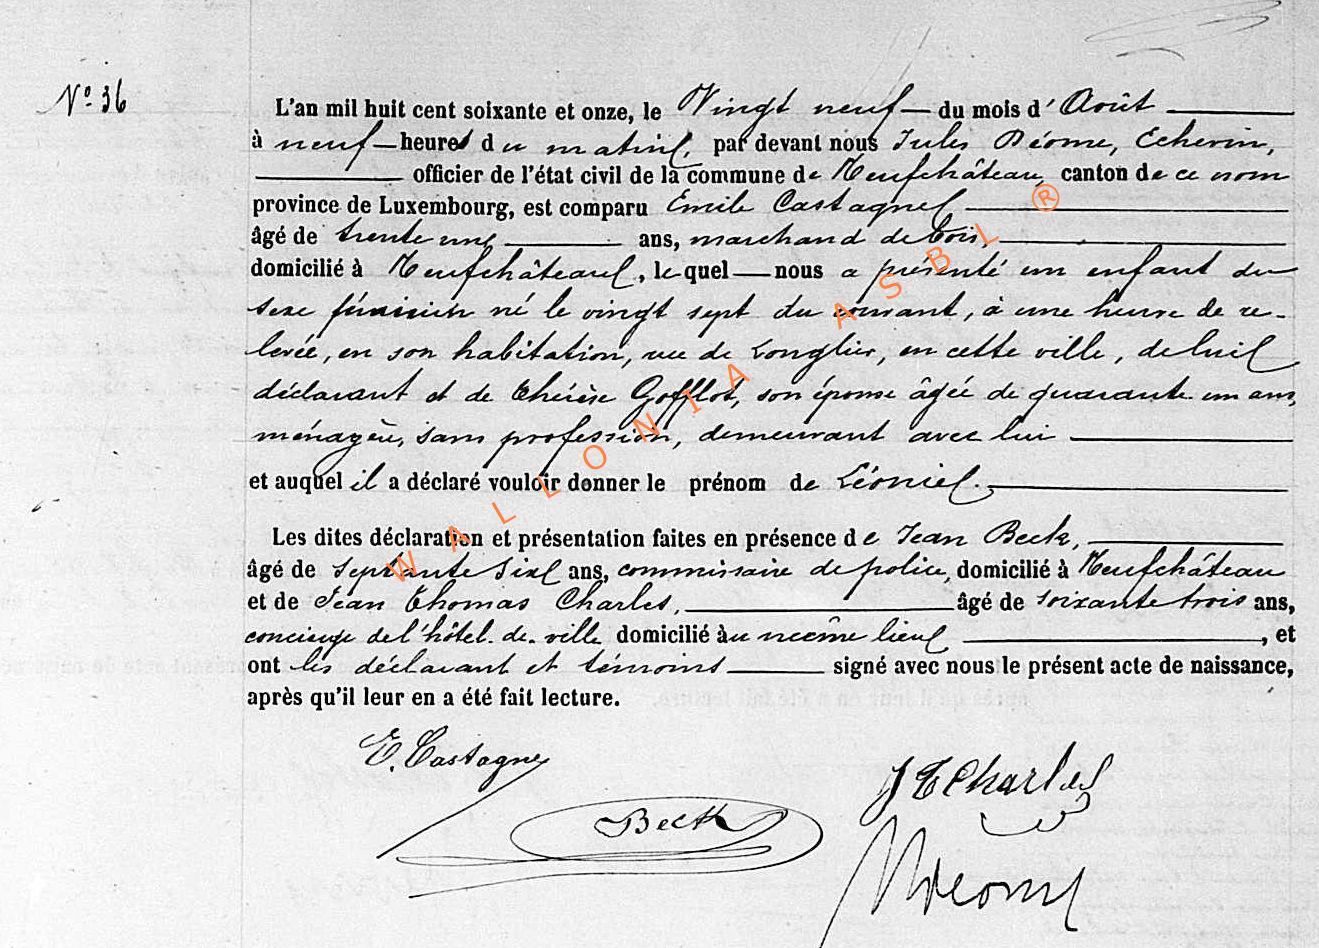 N° 36
L'an mil huit cent soixante et onze, le Vingt neuf du mois d'Août
à neuf heures du matin, par devant nous Jules Déome, Echevin,
officier de l'état civil de la commune de Neufchâteau, canton de ce nom
province de Luxembourg, est comparu Emile Castagne
âgé de trente un ans, marchand de bois,
domicilié à Neufchâteau, lequel nous a présenté un enfant du
sexe féminin né le vingt sept du courant, à une heure de re-
levée, en son habitation, rue de Longlier, en cette ville, de lui
déclarant et de Thérèse Gofflot, son épouse âgée de quarante un ans,
ménagère, sans profession, demeurant avec lui
et auquel il a déclaré vouloir donner le prénom de Léonie.
Les dites déclaration et présentation faites en présence de Jean Beck,
âgé de septante six ans, commissaire de police, domicilié à Neufchâteau
et de Jean Thomas Charles, âgé de soixante trois ans,
concierge de l'hôtel-de-ville domicilié au même lieu, et
ont les déclarant et témoins signé avec nous le présent acte de naissance,
après qu'il leur en a été fait lecture.
E. Castagne
J T Charles
Beck
Déome
WALLONIA ASBL ®